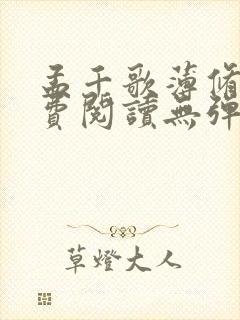 孟千歌薄脩
費閱讀無彈
草燈大人